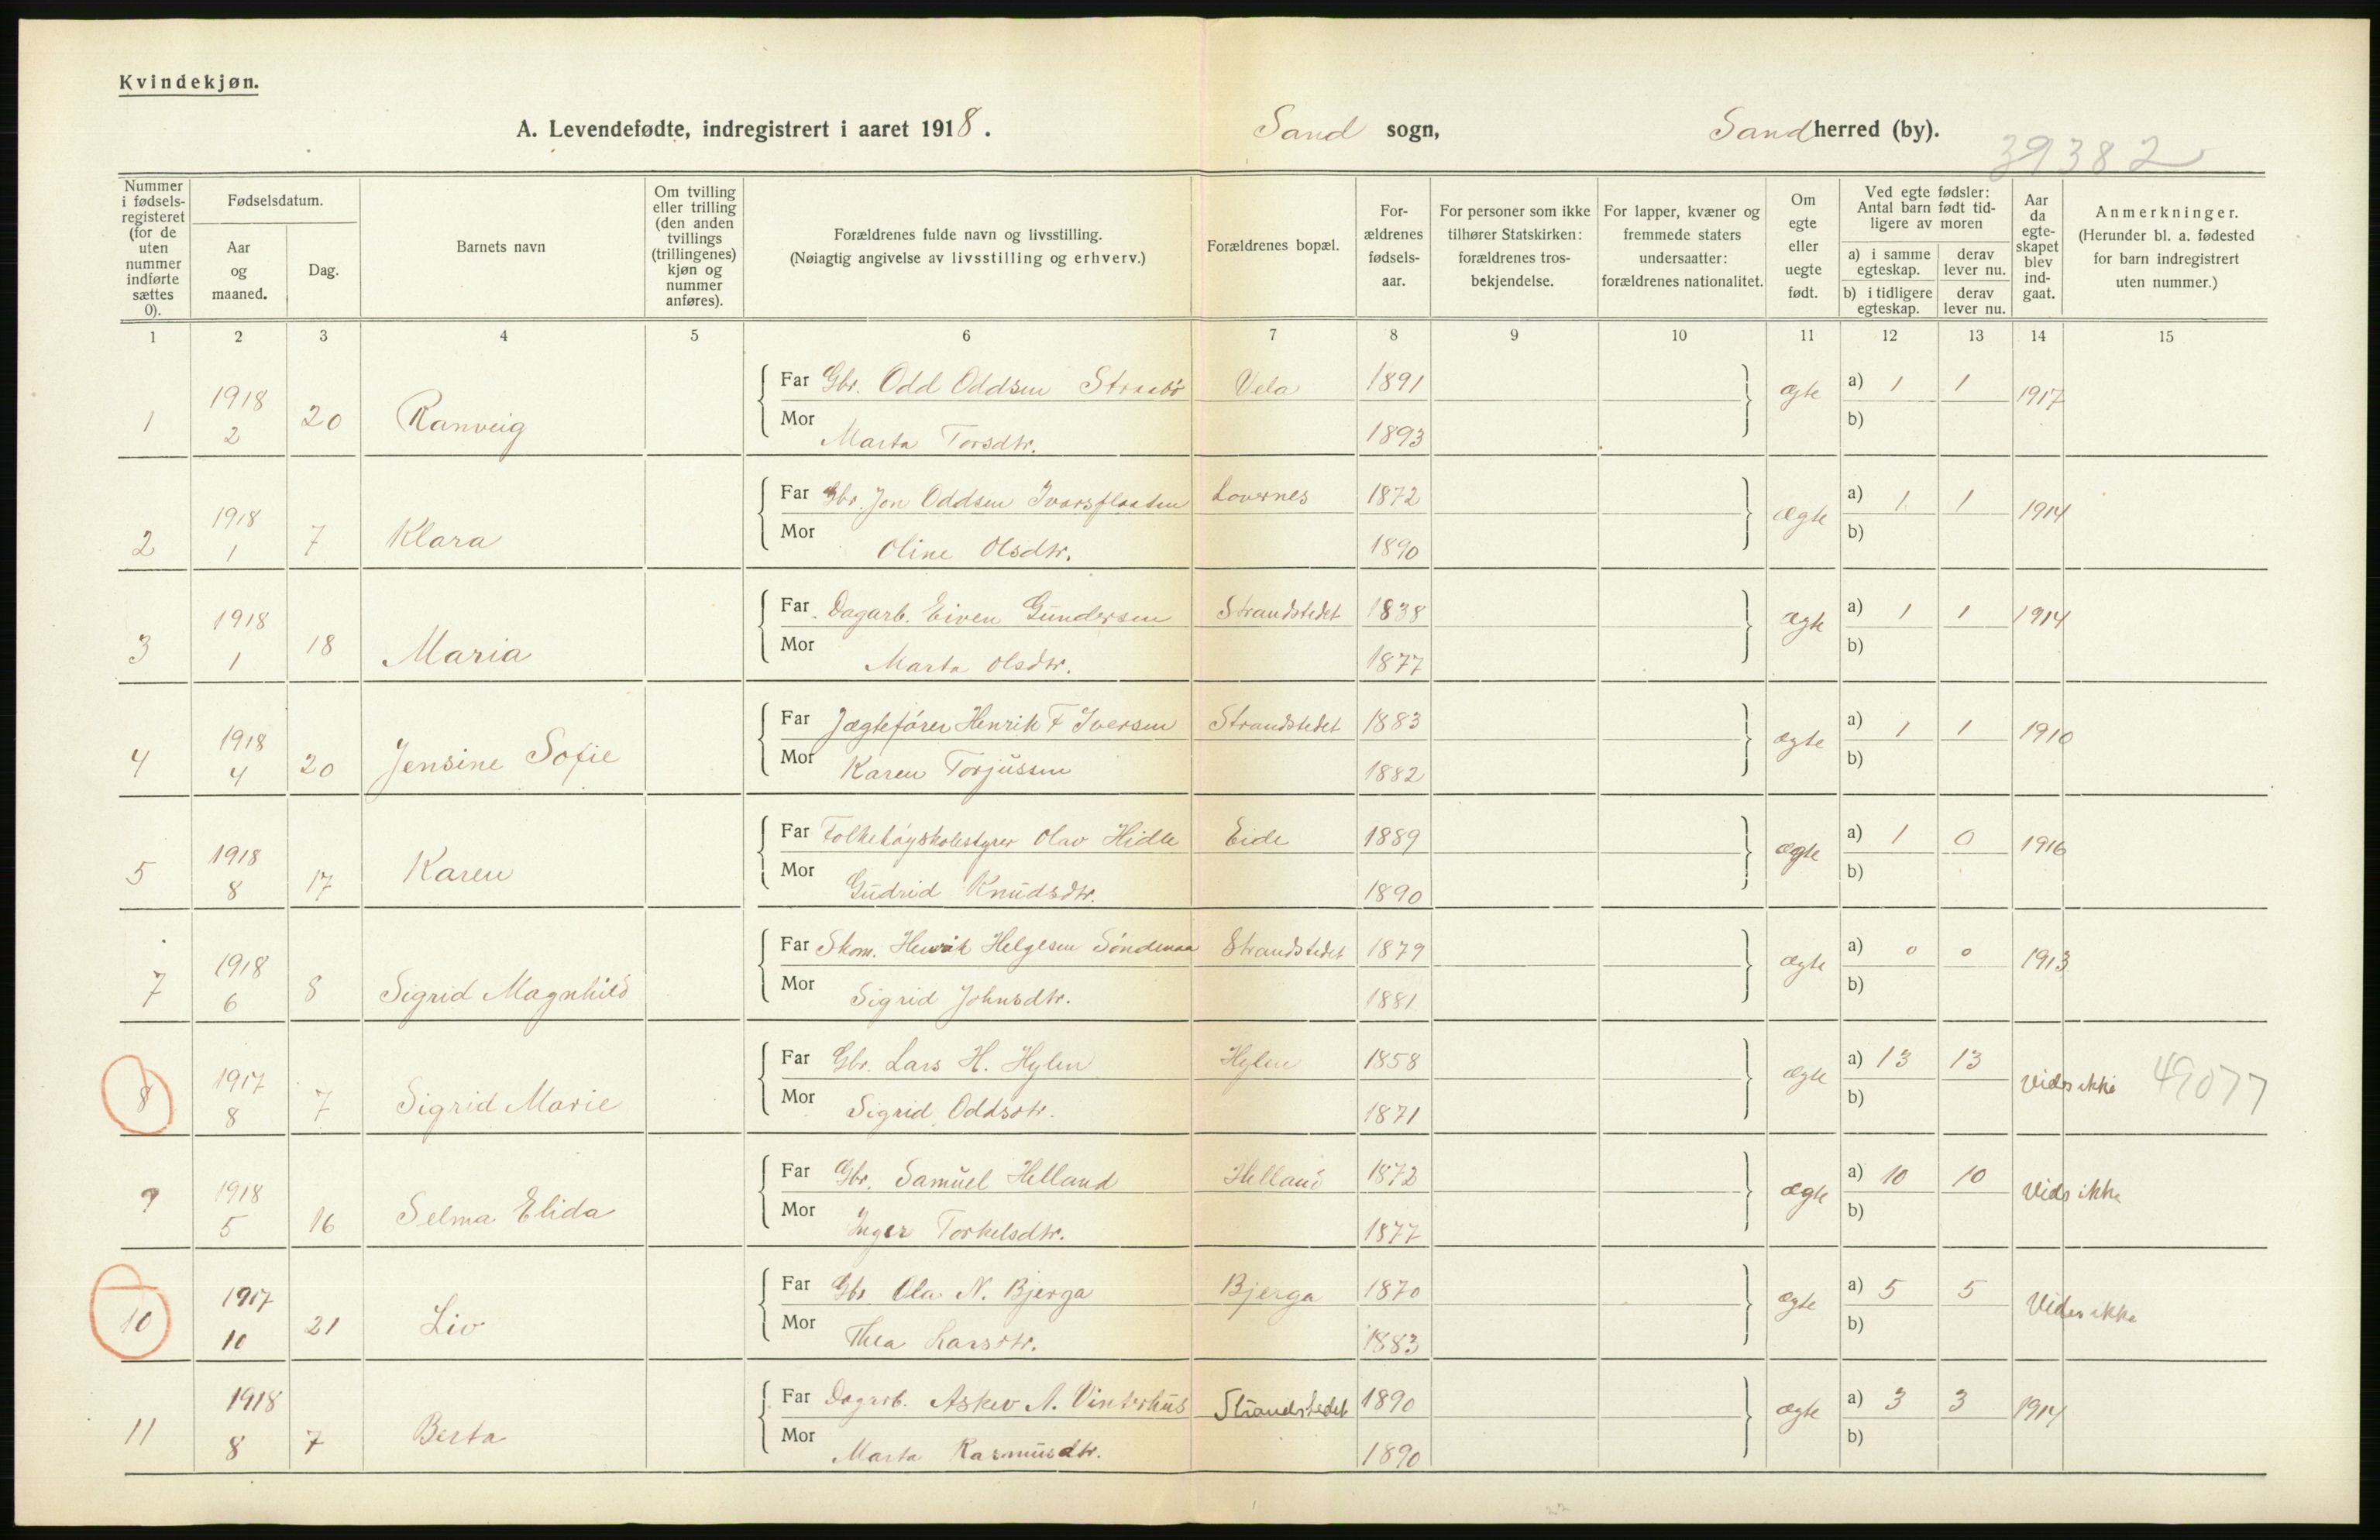 Kvindekjøn.
A. Levendefødte, indregistrert i aaret 1918. Sand sogn, Sand herred (by).
39382
Nummer i fødsels-registeret (for de uten nummer indførte sættes 0).
Fødselsdatum.
Aar og maaned.
Dag.
Barnets navn
Om tvilling eller trilling (den anden tvillings (trillingenes) kjøn og nummer anføres).
Forældrenes fulde navn og livsstilling.
(Nøiagtig angivelse av livsstilling og erhverv.)
Forældrenes bopæl.
For-ældrenes fødsels-aar.
For personer som ikke tilhører Statskirken: forældrenes tros-bekjendelse.
For lapper, kvæner og fremmede staters undersaatter: forældrenes nationalitet.
Om egte eller uegte født.
Ved egte fødsler: Antal barn født tid-ligere av moren
a) i samme egteskap. derav lever nu.
b) i tidligere egteskap. derav lever nu.
Aar da egte-skapet blev ind-gaat.
Anmerkninger.
(Herunder bl. a. fødested for barn indregistrert uten nummer.)
1 2 3 4 5 6 7 8 9 10 11 12 13 14 15
1 1918 2 20 Ranveig Far Gbr. Odd Oddsen Straabø Vela 1891 ægte a) 1 1 1917
Mor Marta Torsdtr. 1893 b)
2 1918 1 7 Klara Far Gbr. Jon Oddsen Ivarsflaaten Lovernes 1872 ægte a) 1 1 1914
Mor Oline Olsdtr. 1890 b)
3 1918 1 18 Maria Far Dagarb. Eiven Gundersen Strandstedet 1838 ægte a) 1 1 1914
Mor Marta Olsdtr. 1877 b)
4 1918 4 20 Jensine Sofie Far Jægtefører Henrik F Iversen Strandstedet 1883 ægte a) 1 1 1910
Mor Karen Torjussen 1882 b)
5 1918 8 17 Karen Far Folkehøyskolestyrer Olav Hidle Eide 1889 ægte a) 1 0 1916
Mor Gudrid Knudsdtr. 1890 b)
7 1918 6 8 Sigrid Magnhild Far Skom. Henrik Helgesen Søndenaa Strandstedet 1879 ægte a) 0 0 1913
Mor Sigrid Johnsdtr. 1881 b)
8 1917 8 7 Sigrid Marie Far Gbr. Lars H. Hylen Hylen 1858 ægte a) 13 13 Vides ikke 49077
Mor Sigrid Oddsdtr. 1871 b)
9 1918 5 16 Selma Elida Far Gbr. Samuel Helland Helland 1872 ægte a) 10 10 Vids ikke
Mor Inger Torkelsdtr. 1877 b)
10 1917 10 21 Liv Far Gbr Ola N. Bjerga Bjerga 1870 ægte a) 5 5 Vides ikke
Mor Thea Larsdtr. 1883 b)
11 1918 8 7 Berta Far Dagarb. Askev A. Vinterhus Strandstedet 1890 ægte a) 3 3 1914
Mor Marta Rasmusdtr. 1890 b)